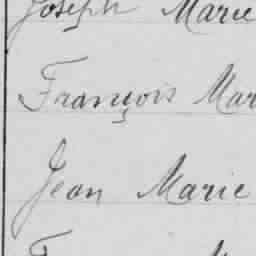 Joseph Marie
François Mar
Jean Marie